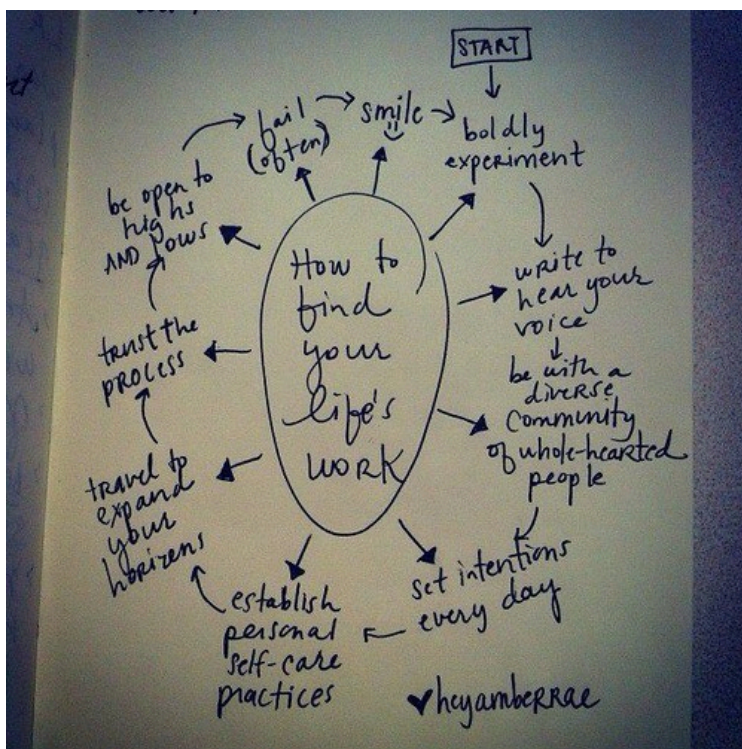 START
boldly
experiment
write to
hear your
voice
be with a
diverse
community
of whole-hearted
people
set intentions
every day
establish
personal
self-care
practices
travel to
expand
your
horizens
trust the
PROCESS
be open to
highs
AND LOWS
fail
(often)
smile
How to
find
your
life's
WORK
♥heyamberrae